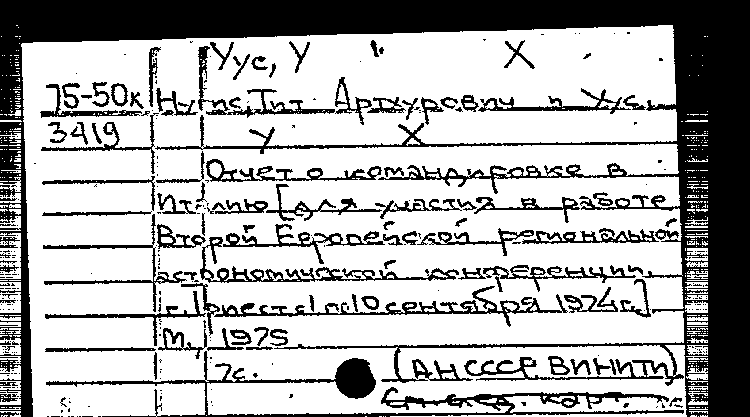 Уус, У Х
75-50к Нугис, Тит Артурович и Уус,
3419 У Х
Отчет о командировке в
Италию [для участия в работе
Второй Европейской региональной
астрономической конференции.
г. Триест с 1 по 10 сентября 1974г.].
М., 1975.
7с. (АН СССР. ВИНИТИ)
См. след. карт.